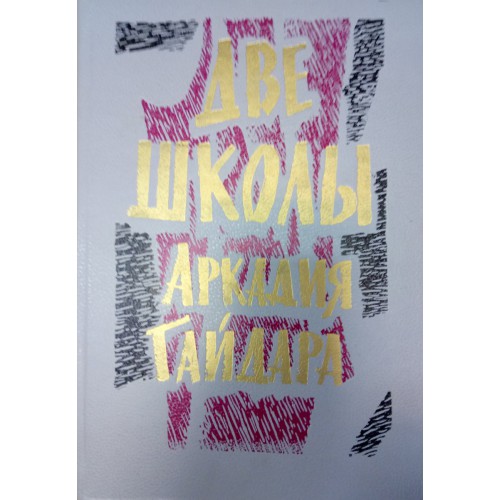 ДВЕ
ШКОЛЫ
АРКАДИЯ
ГАЙДАРА